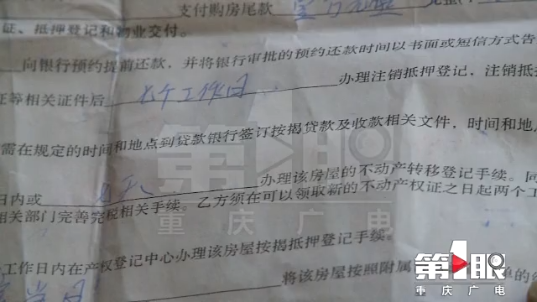 支付购房尾款
证、抵押登记和物业交付。
向银行预约提前还款，并将银行审批的预约还款时间以书面或短信方式告
证等相关证件后 个工作日 办理注销抵押登记，注销抵
需在规定的时间和地点到贷款银行签订按揭贷款及收款相关文件，时间和地
日内或 办理该房屋的不动产转移登记手续。同
相关部门完善完税相关手续。乙方须在可以领取新的不动产权证之日起两个工
工作日内在产权登记中心办理该房屋按揭抵押登记手续。
将该房屋按照附属
当日
第1眼
重庆广电
第1眼
重庆广电